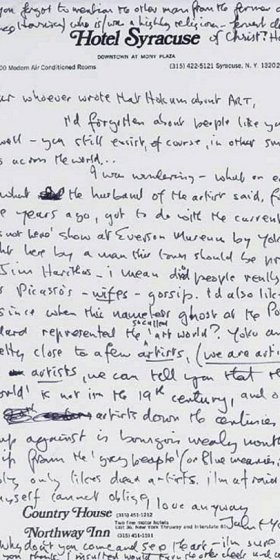 you forgot to mention the other man from the former
who is/was a highly religious - fervent
of Christ? H
Hotel Syracuse
DOWNTOWN AT MONY PLAZA
00 Modern Air Conditioned Rooms
(315) 422-5121 Syracuse, N.Y. 13202
whoever wrote that Hokum about ART,
I'd forgotten about people like you
well - you still exist, of course, in other small
s across the world...
I was wondering - what on e
what the husband of the artist said, f
e years ago, got to do with the current
not here' show at Everson Museum by Yoko
ght here by a man this town should be pr
Jim Harithas - i mean did people really
Picasso's - wifes - gossip. I'd also like
since when this nameless ghost at the Po
dard represented the so called 'art world? Yoko and
etty close to a few artists, (we are arti
artists, we can tell you that the
world' is not in the 19th century, and o
artists down the centuries
up against is bourgeois mealy mouth
from the 'grey people' (or Blue meanies
only likes dead artists. i'm afraid
myself cannot oblige,
love anyway
John + Y
Country House
(315) 451-1212
Two fine motor hotels
Northway Inn
why don't you come and see